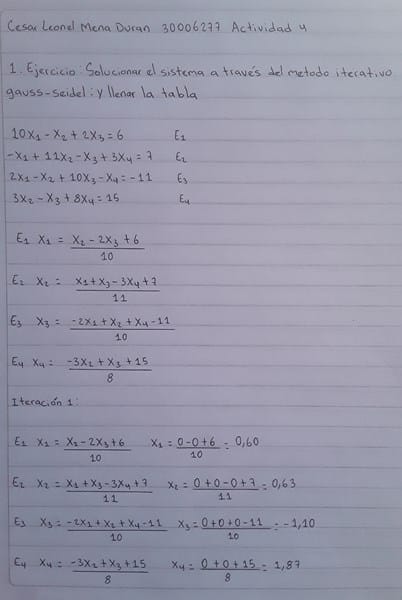 Cesar Leonel Mena Duran 30006277 Actividad 4
1. Ejercicio: Solucionar el sistema a través del metodo iterativo
gauss-seidel: y llenar la tabla
10x₁ - x₂ + 2x₃ = 6 E₁
-x₁ + 11x₂ - x₃ + 3x₄ = 7 E₂
2x₁ - x₂ + 10x₃ - x₄ = -11 E₃
3x₂ - x₃ + 8x₄ = 15 E₄
E₁ x₁ = x₂ - 2x₃ + 6
10
E₂ x₂ = x₁ + x₃ - 3x₄ + 7
11
E₃ x₃ = -2x₁ + x₂ + x₄ - 11
10
E₄ x₄ = -3x₂ + x₃ + 15
8
Iteración 1:
E₁ x₁ = x₂ - 2x₃ + 6 x₁ = 0 - 0 + 6 = 0,60
10 10
E₂ x₂ = x₁ + x₃ - 3x₄ + 7 x₂ = 0 + 0 - 0 + 7 = 0,63
11 11
E₃ x₃ = -2x₁ + x₂ + x₄ - 11 x₃ = 0 + 0 + 0 - 11 = -1,10
10 10
E₄ x₄ = -3x₂ + x₃ + 15 x₄ = 0 + 0 + 15 = 1,87
8 8